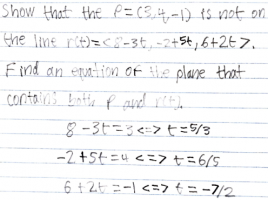 Show that the P=(3,4,-1) is not on
the line r(t)=<8-3t,-2+5t,6+2t>.
Find an equation of the plane that
contains both P and r(t).
8-3t=3<=>t=5/3
-2+5t=4<=>t=6/5
6+2t=-1<=>t=-7/2